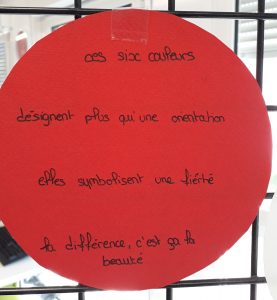 ces six couleurs
désignent plus qu'une orientation
elles symbolisent une fierté
la différence, c'est ça la
beauté